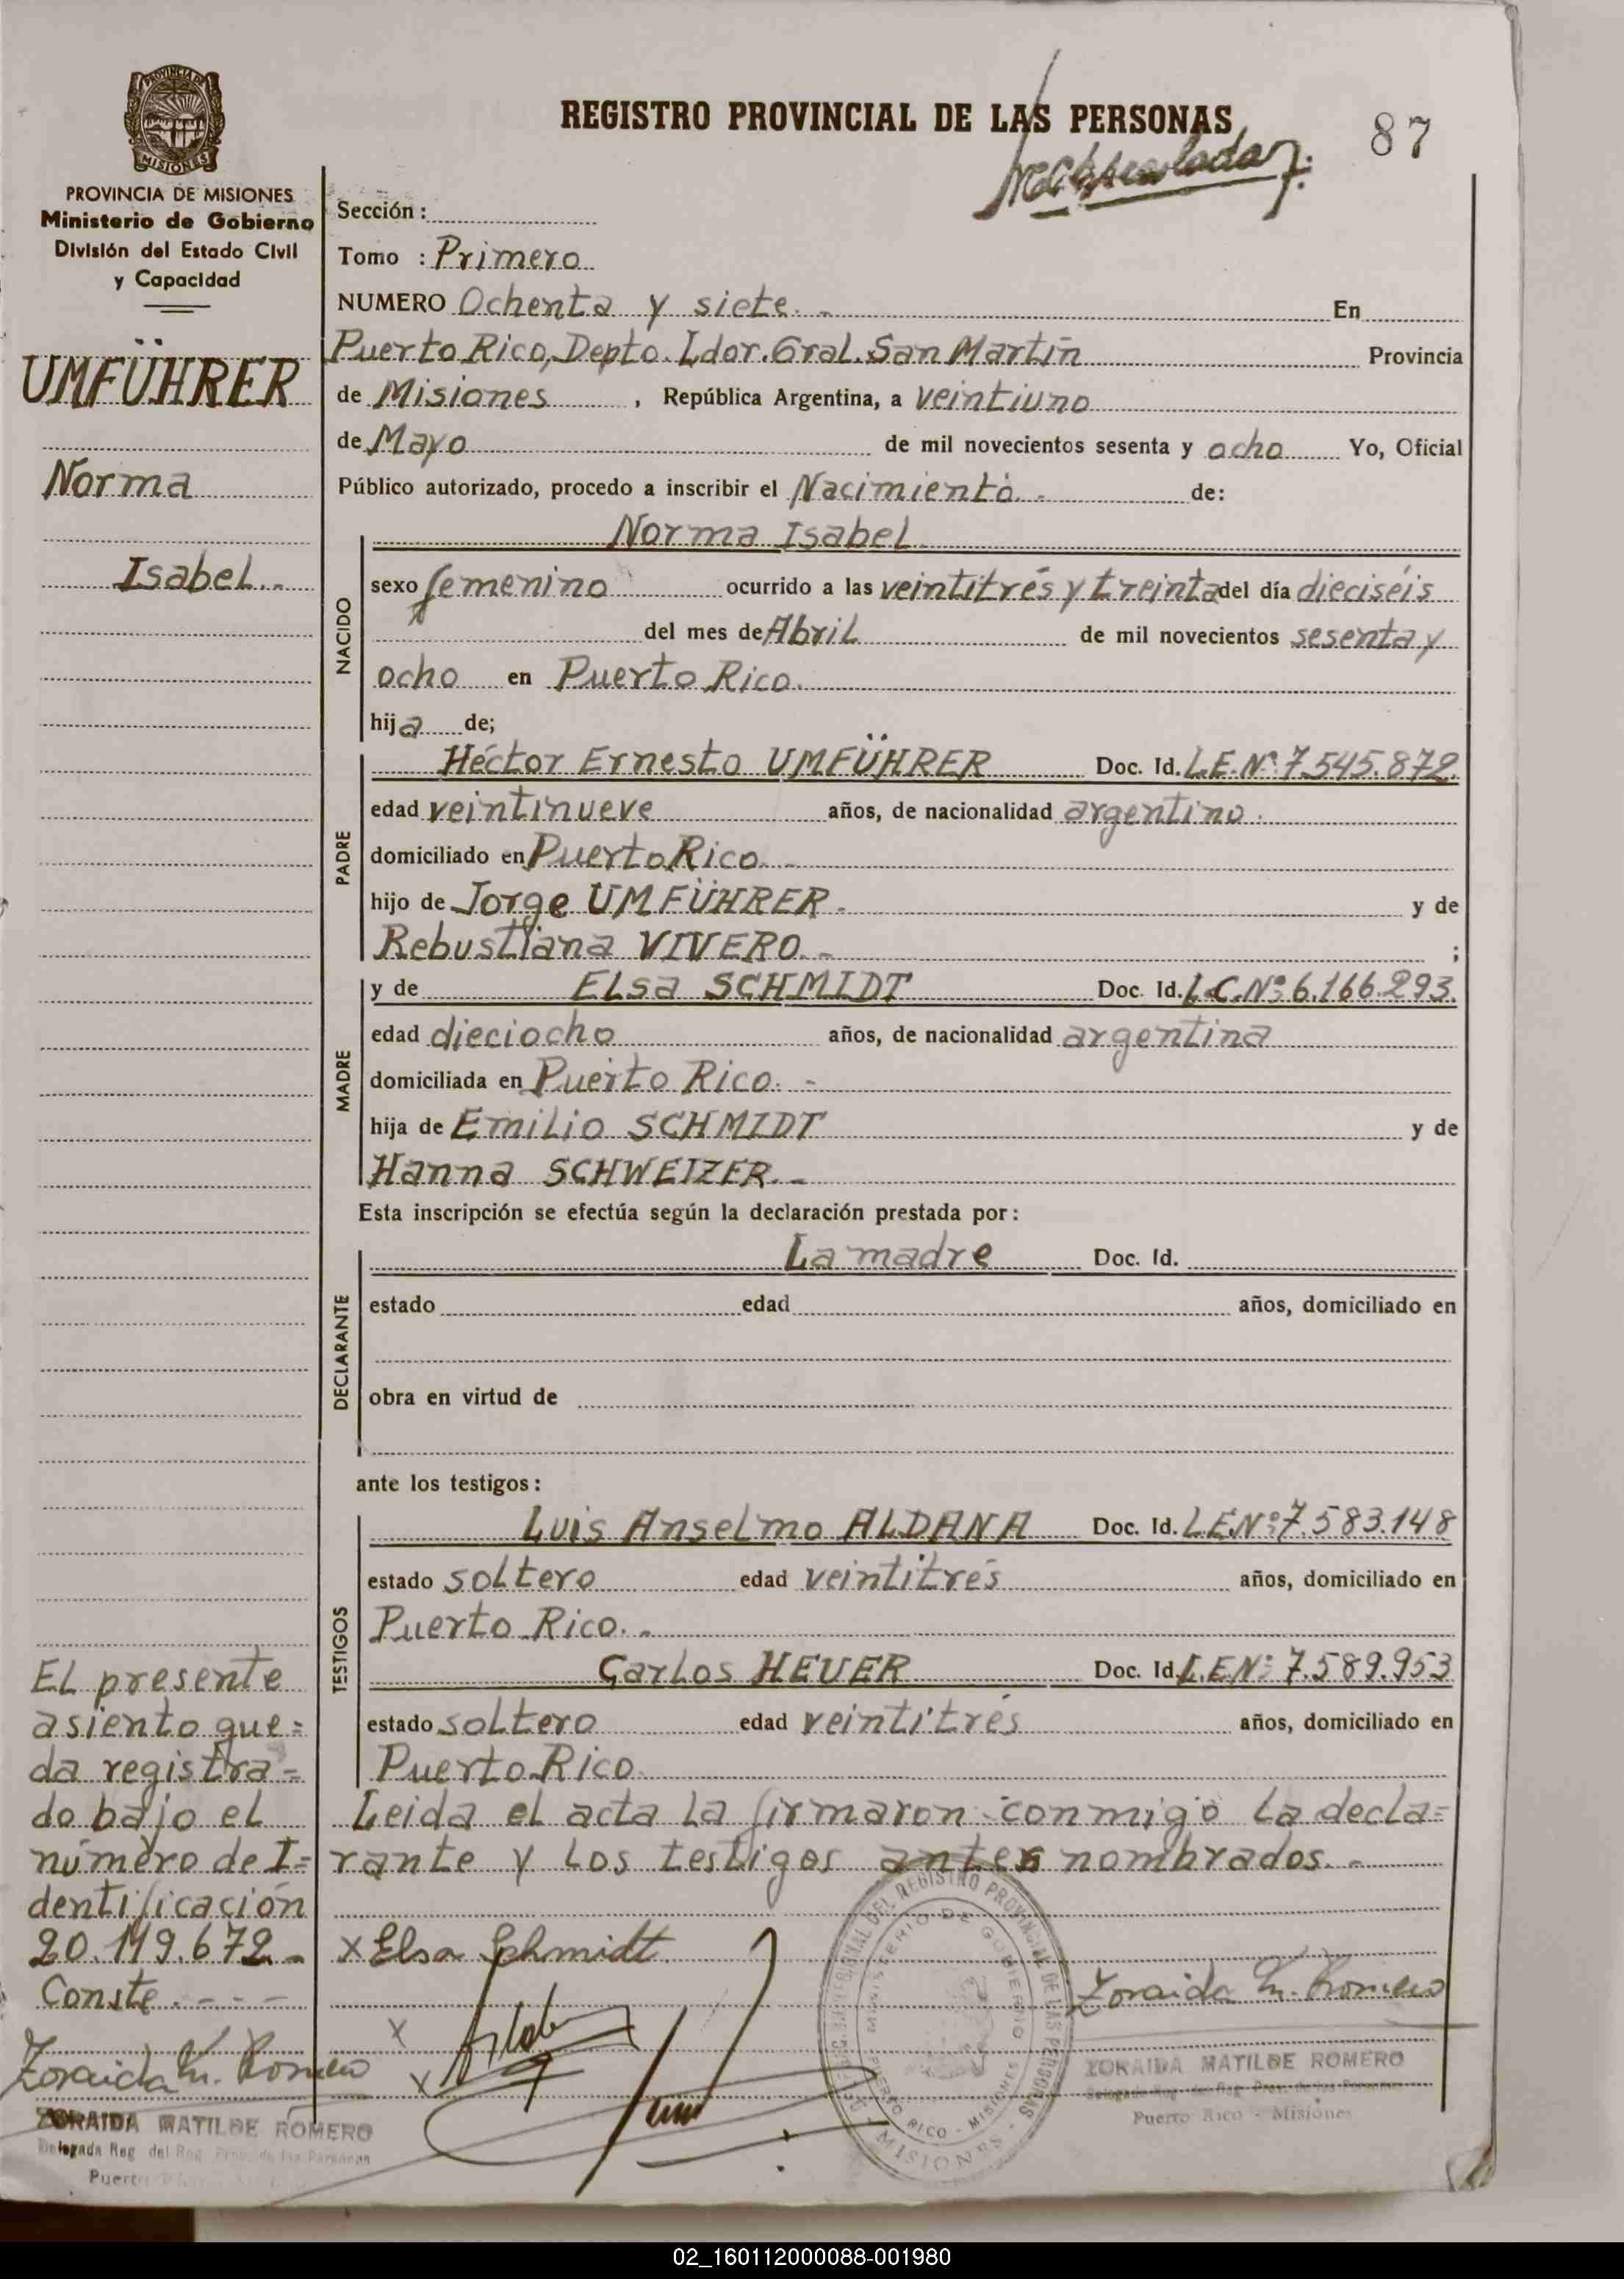 REGISTRO PROVINCIAL DE LAS PERSONAS
87
PROVINCIA DE
MISIONES
PROVINCIA DE MISIONES
Ministerio de Gobierno
División del Estado Civil
y Capacidad
UMFÜHRER
Norma
Isabel.-
Sección :
Tomo : Primero
NUMERO Ochenta y siete.- En
Puerto Rico, Depto. Ldor. Gral. San Martín Provincia
de Misiones , República Argentina, a veintiuno
de Mayo de mil novecientos sesenta y ocho Yo, Oficial
Público autorizado, procedo a inscribir el Nacimiento.- de:
Norma Isabel
NACIDO
sexo femenino ocurrido a las veintitrés y treinta del día dieciséis
del mes de Abril de mil novecientos sesenta y
ocho en Puerto Rico.
hija de;
PADRE
Héctor Ernesto UMFÜHRER Doc. Id. L.E.Nº:7.545.872.
edad veintinueve años, de nacionalidad argentino.
domiciliado en Puerto Rico.-
hijo de Jorge UMFÜHRER.- y de
Rebustiana VIVERO.- ;
MADRE
y de Elsa SCHMIDT Doc. Id. L.C.Nº:6.166.293.
edad dieciocho años, de nacionalidad argentina
domiciliada en Puerto Rico.-
hija de Emilio SCHMIDT y de
Hanna SCHWEIZER.-
Esta inscripción se efectúa según la declaración prestada por :
DECLARANTE
La madre Doc. Id.
estado edad años, domiciliado en
obra en virtud de
ante los testigos :
TESTIGOS
Luis Anselmo ALDANA Doc. Id. L.E.Nº:7.583.148
estado soltero edad veintitrés años, domiciliado en
Puerto Rico.-
Carlos HEUER Doc. Id. L.E.Nº: 7.589.953
estado soltero edad veintitrés años, domiciliado en
Puerto Rico
Leida el acta la firmaron conmigo la decla=
rante y los testigos antes nombrados.-
El presente
asiento que=
da registra=
do bajo el
número de I=
dentificación
20.119.672.-
Conste.---
x Elsa Schmidt
x
x
Zoraida M. Romero
ZORAIDA MATILDE ROMERO
Delegada Reg. del Reg. Prov. de las Personas
Puerto Rico - Misiones
DEL REGISTRO PROVINCIAL DE LAS PERSONAS
MINISTERIO DE GOBIERNO
PUERTO RICO - MISIONES
MISIONES
Zoraida M. Romero
ZORAIDA MATILDE ROMERO
Delegada Reg. del Reg. Prov. de las Personas
02_160112000088-001980